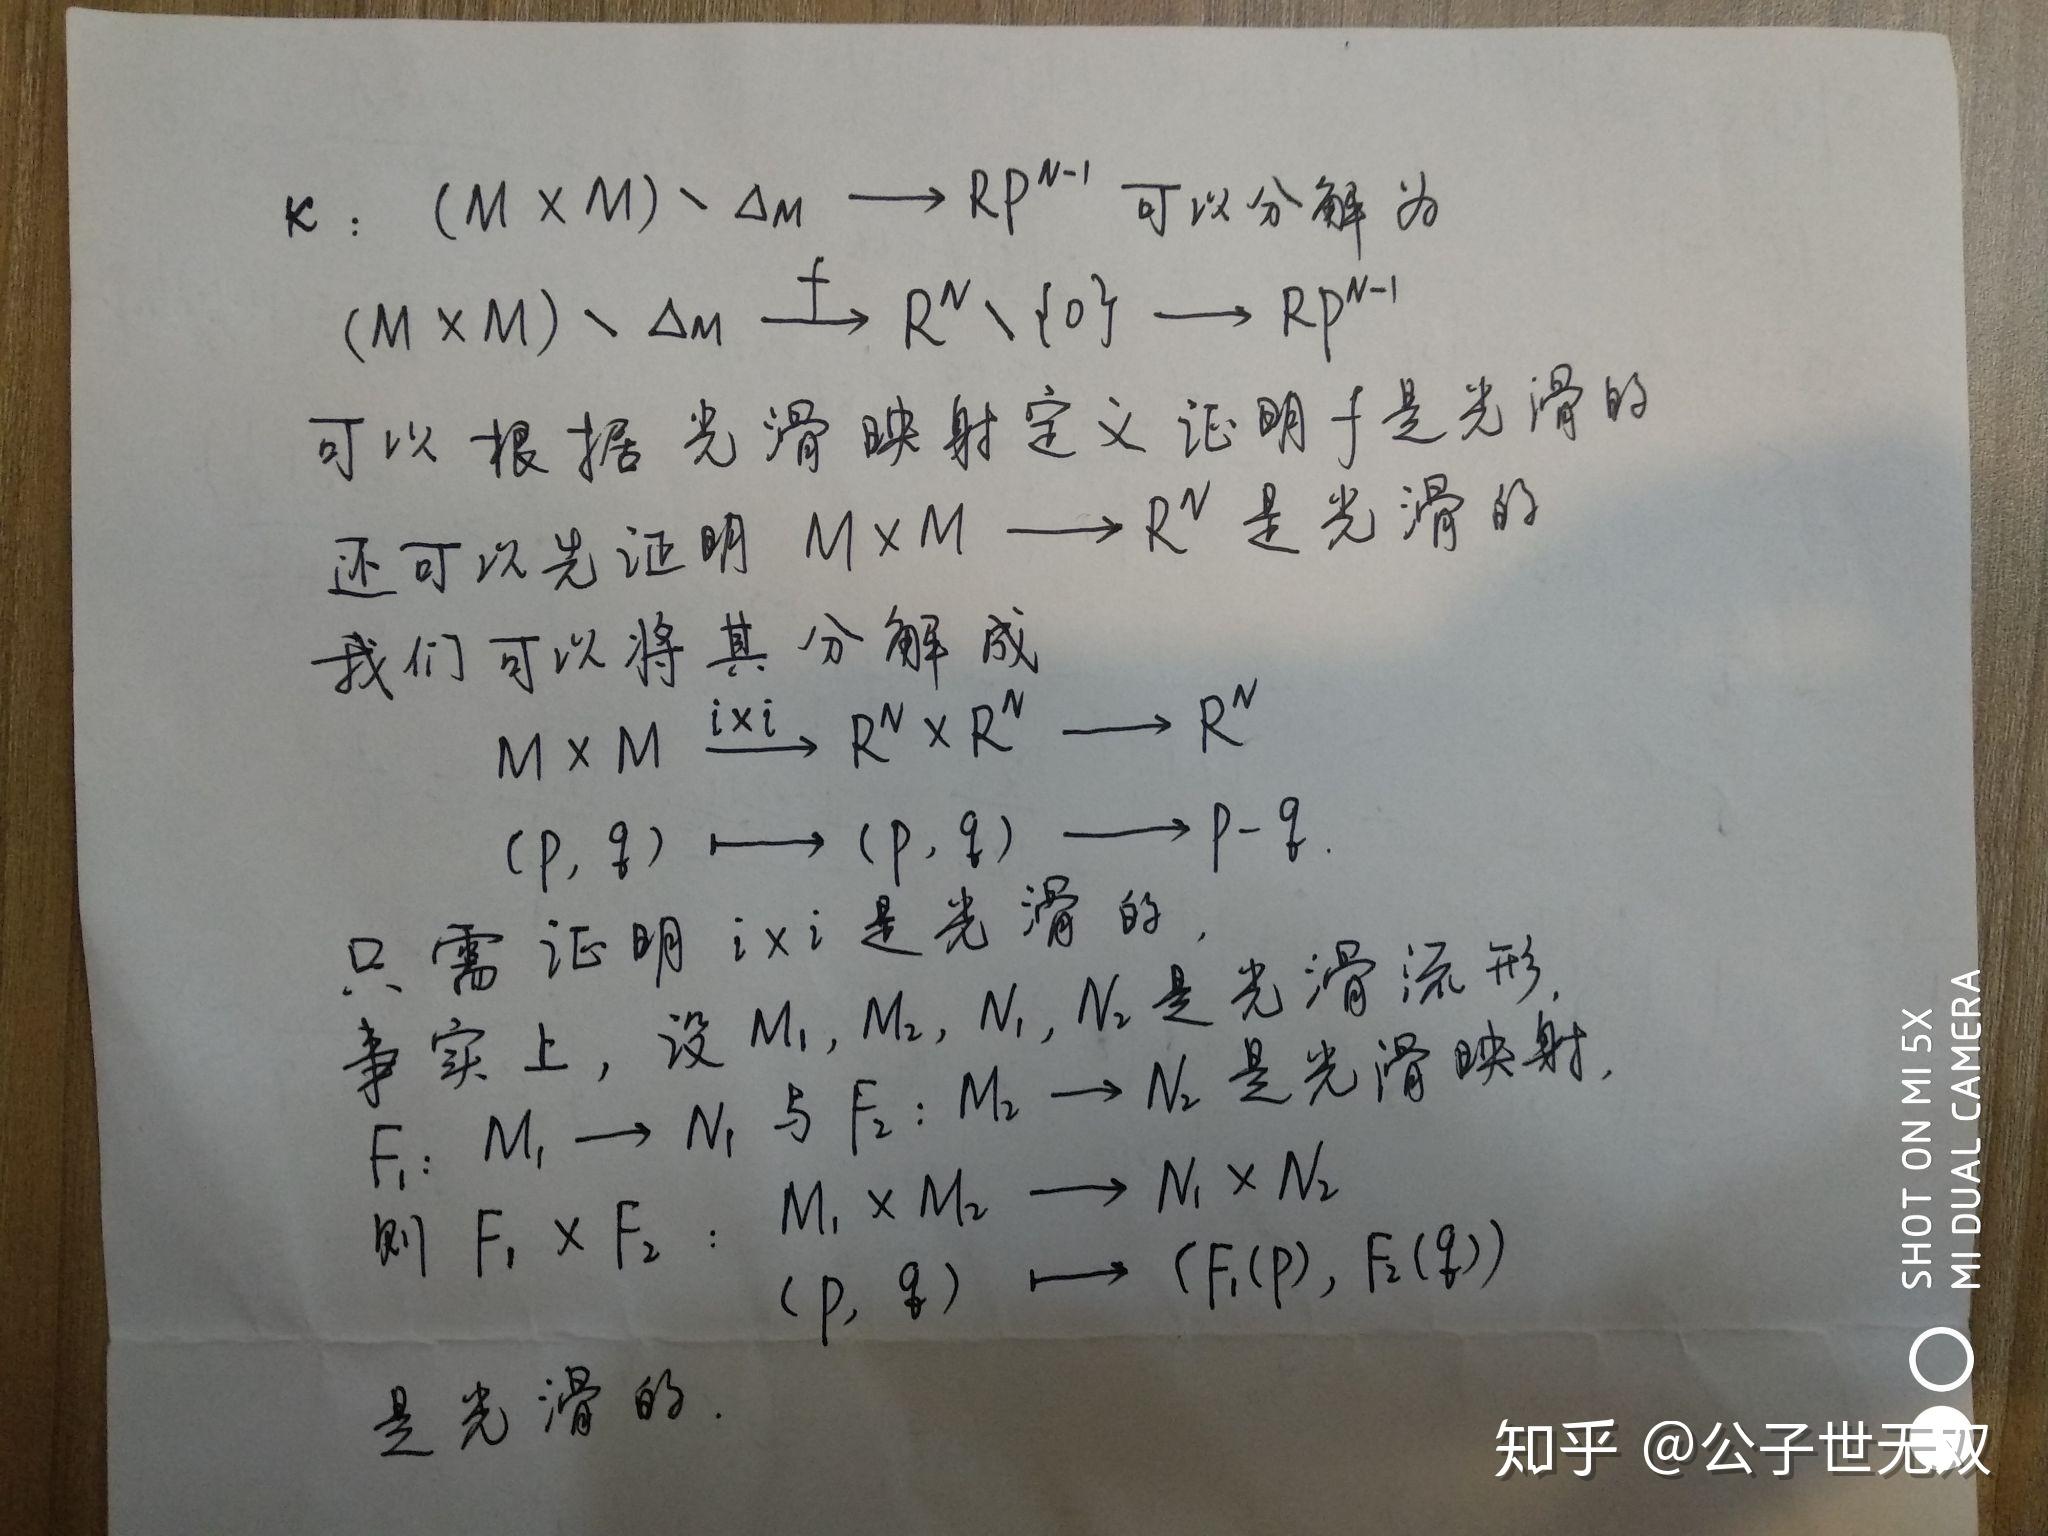 κ: (M × M) \ ΔM ⟶ RP^{N-1} 可以分解为
(M × M) \ ΔM ⟶^{f} R^N \ {0} ⟶ RP^{N-1}
可以根据光滑映射定义证明f是光滑的
还可以先证明 M × M ⟶ R^N 是光滑的
我们可以将其分解成
M × M ⟶^{i×i} R^N × R^N ⟶ R^N
(p, q) ⟼ (p, q) ⟶ p-q.
只需证明 i×i 是光滑的,
事实上, 设 M₁, M₂, N₁, N₂ 是光滑流形.
F₁: M₁ ⟶ N₁ 与 F₂: M₂ ⟶ N₂ 是光滑映射,
则 F₁ × F₂: M₁ × M₂ ⟶ N₁ × N₂
(p, q) ⟼ (F₁(p), F₂(q))
是光滑的.
SHOT ON MI 5X
MI DUAL CAMERA
知乎 @公子世无双